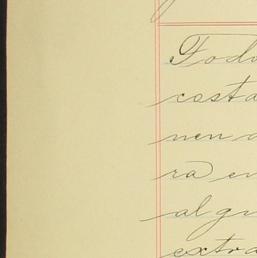 Todo
costa
nen a
ra en
algu
extra